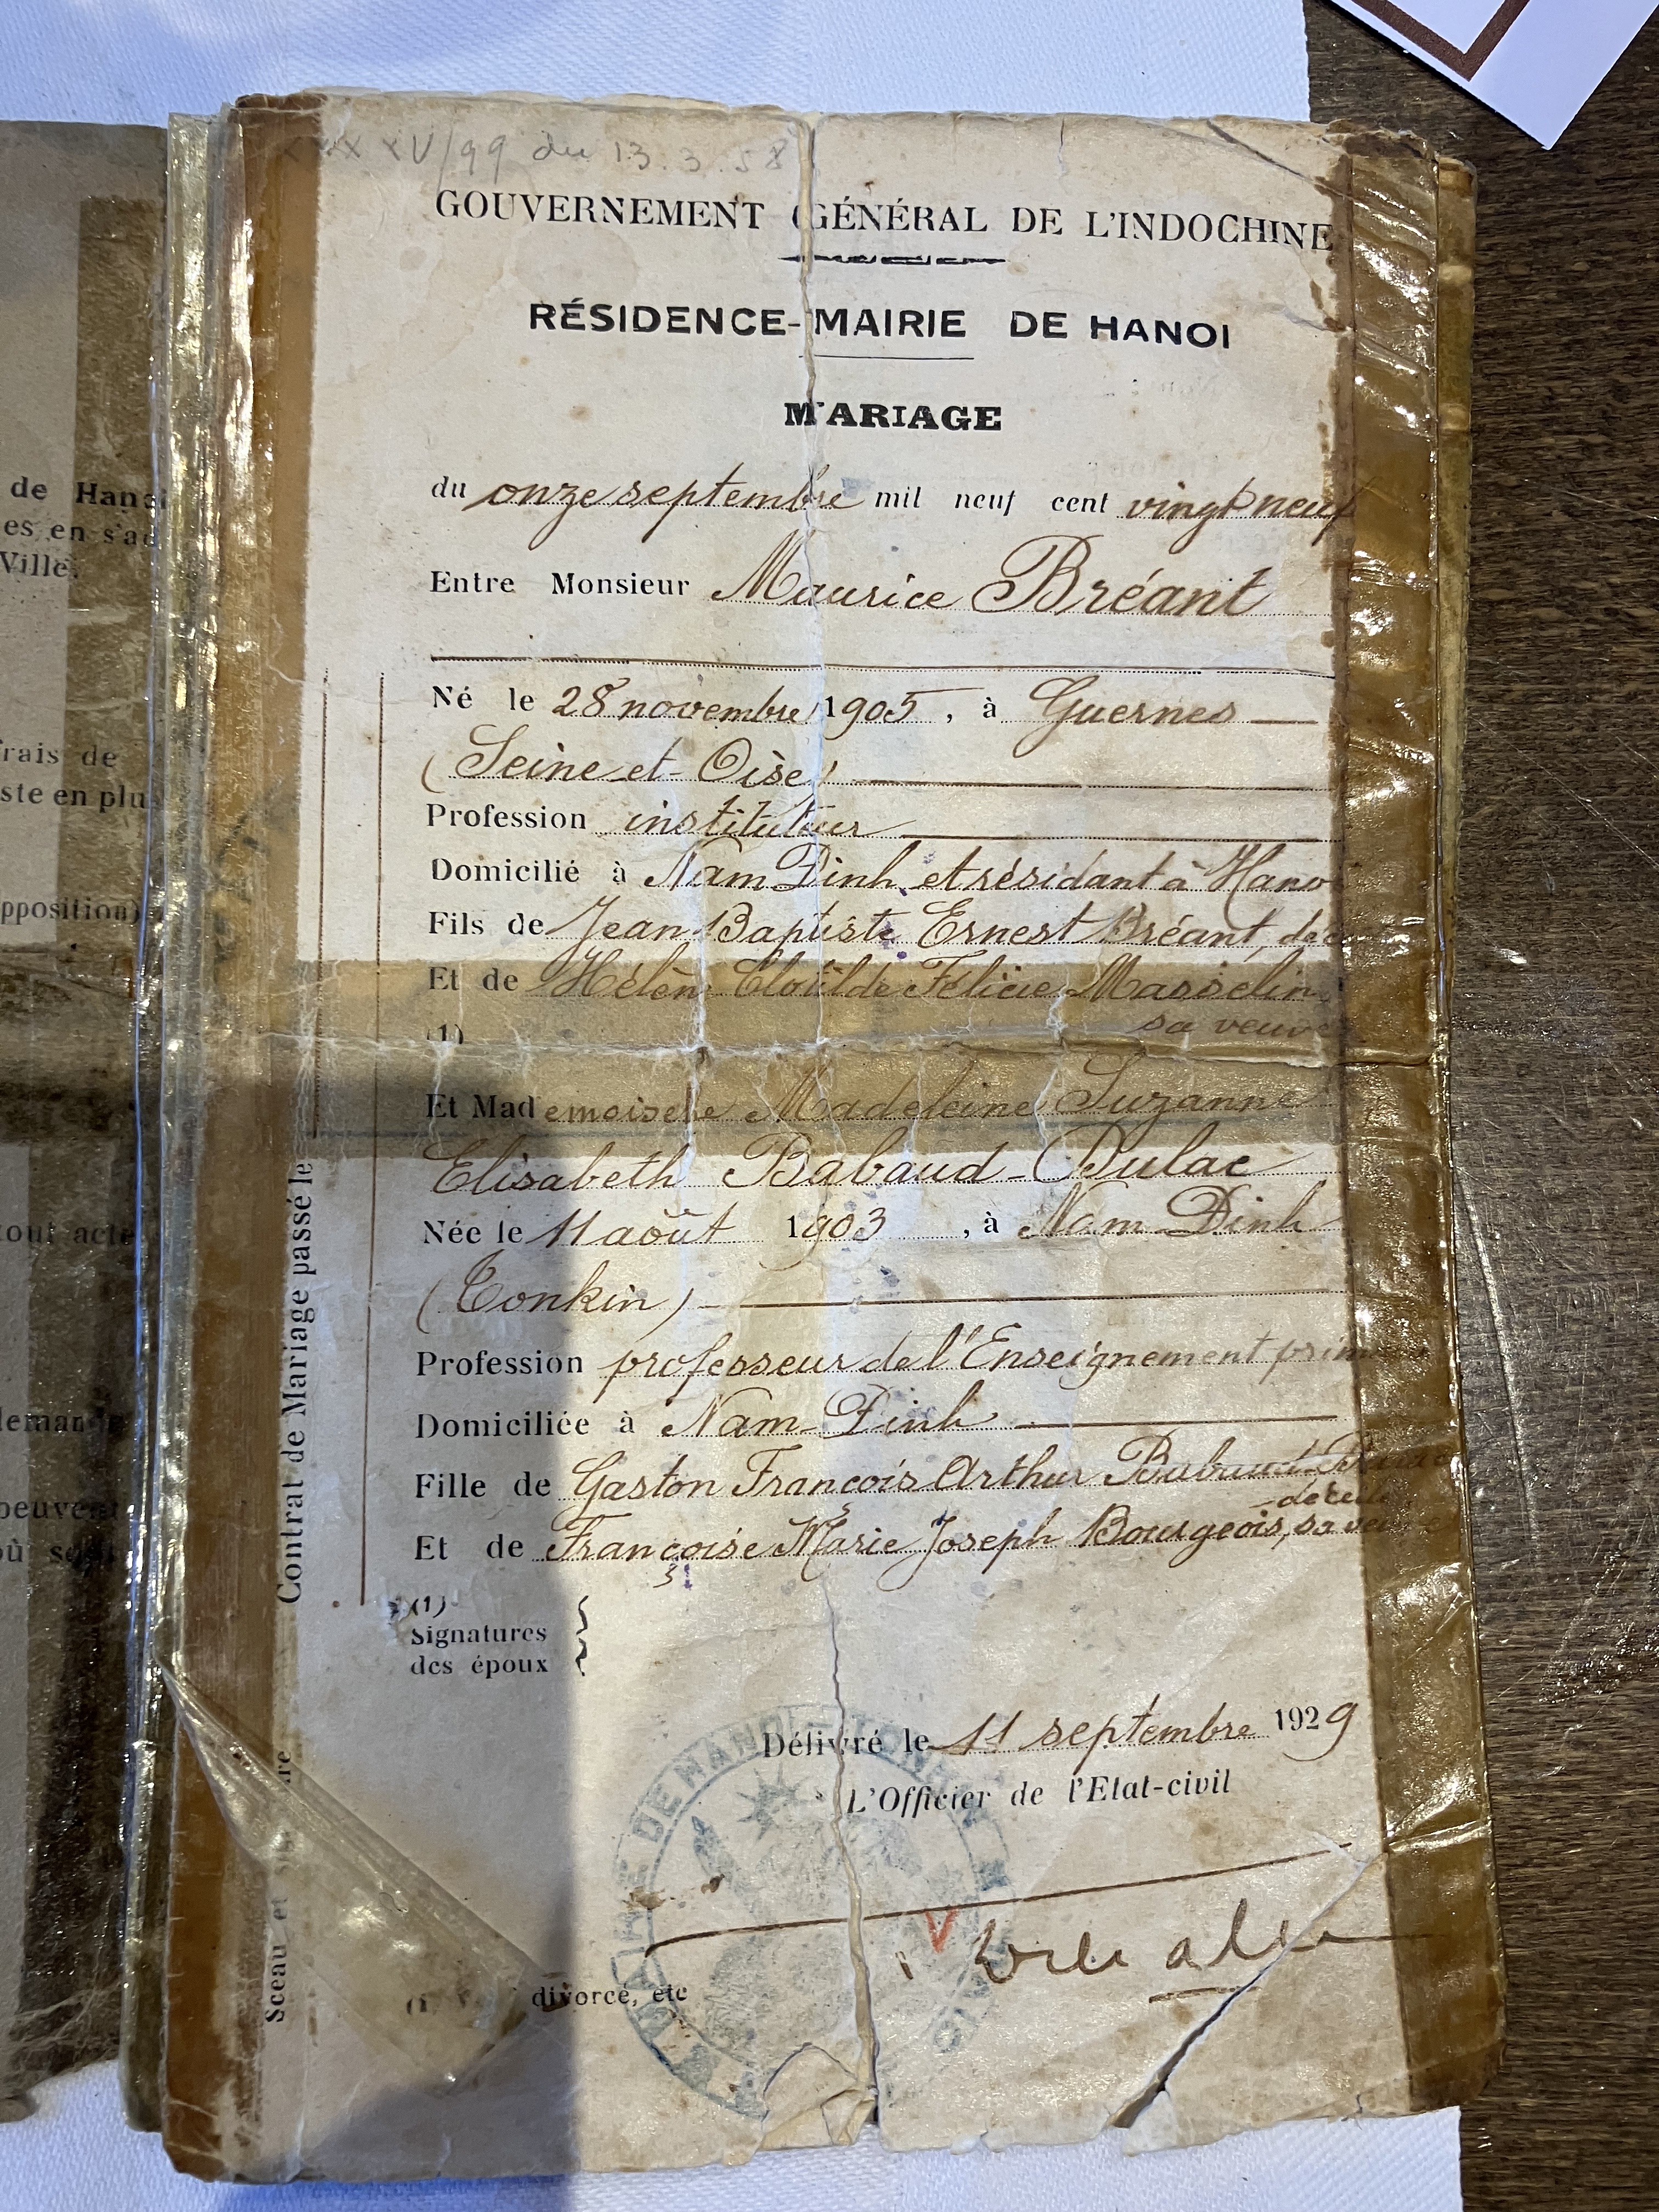 XV/99 du 13.3.58
GOUVERNEMENT GÉNÉRAL DE L'INDOCHINE
RÉSIDENCE-MAIRIE DE HANOI
MARIAGE
du onze septembre mil neuf cent vingt neuf
Entre Monsieur Maurice Bréant
Né le 28 novembre 1905, à Guernes
(Seine-et-Oise)
Profession instituteur
Domicilié à Nam Dinh et résidant à Hano
Fils de Jean Baptiste Ernest Bréant, déc
Et de Hélène Clotilde Félicie Masselin,
sa veuve
(1)
Et Mademoiselle Madeleine Suzanne
Elisabeth Babaud-Dulac
Née le 11 août 1903, à Nam Dinh
(Tonkin)
Profession professeur de l'Enseignement prim
Domiciliée à Nam Dinh
Fille de Gaston François Arthur Babaud-Dulac
décédé
Et de Françoise Marie Joseph Bourgeois, sa veuve
(1)
Signatures
des époux
Délivré le 11 septembre 1929
L'Officier de l'Etat-civil
V
divorcé, etc
Contrat de Mariage passé le
Sceau et
de Hanoi
es en s'ad
Ville.
frais de
ste en plu
pposition)
tout acte
demande
peuvent
où